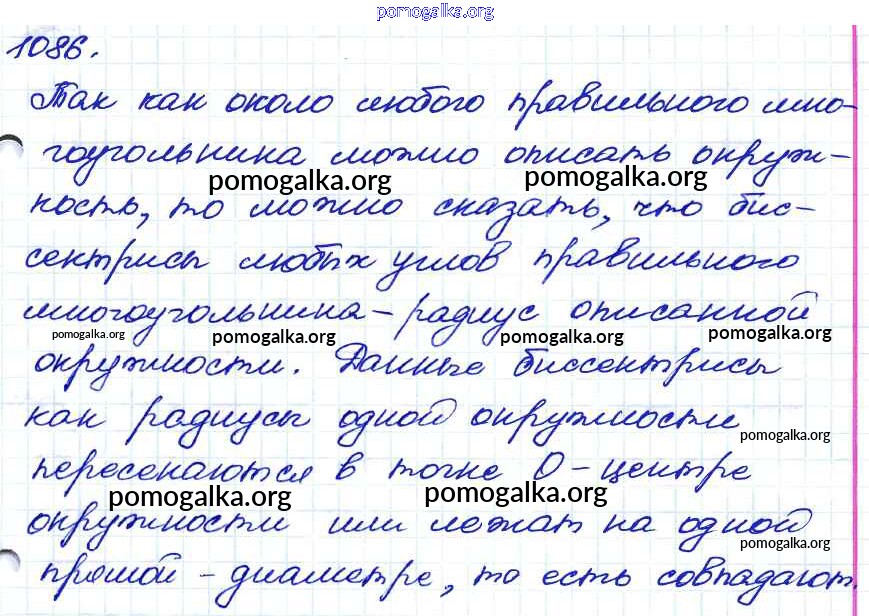 pomogalka.org
1086.
Так как около любого правильного мно-
гоугольника можно описать окруж-
pomogalka.org pomogalka.org
ность, то можно сказать, что бис-
сектрисы любых углов правильного
многоугольника – радиус описанной
pomogalka.org pomogalka.org pomogalka.org pomogalka.org
окружности. Данные биссектрисы
как радиусы одной окружности
pomogalka.org
пересекаются в точке О – центре
pomogalka.org pomogalka.org
окружности или лежат на одной
pomogalka.org
прямой – диаметре, то есть совпадают.